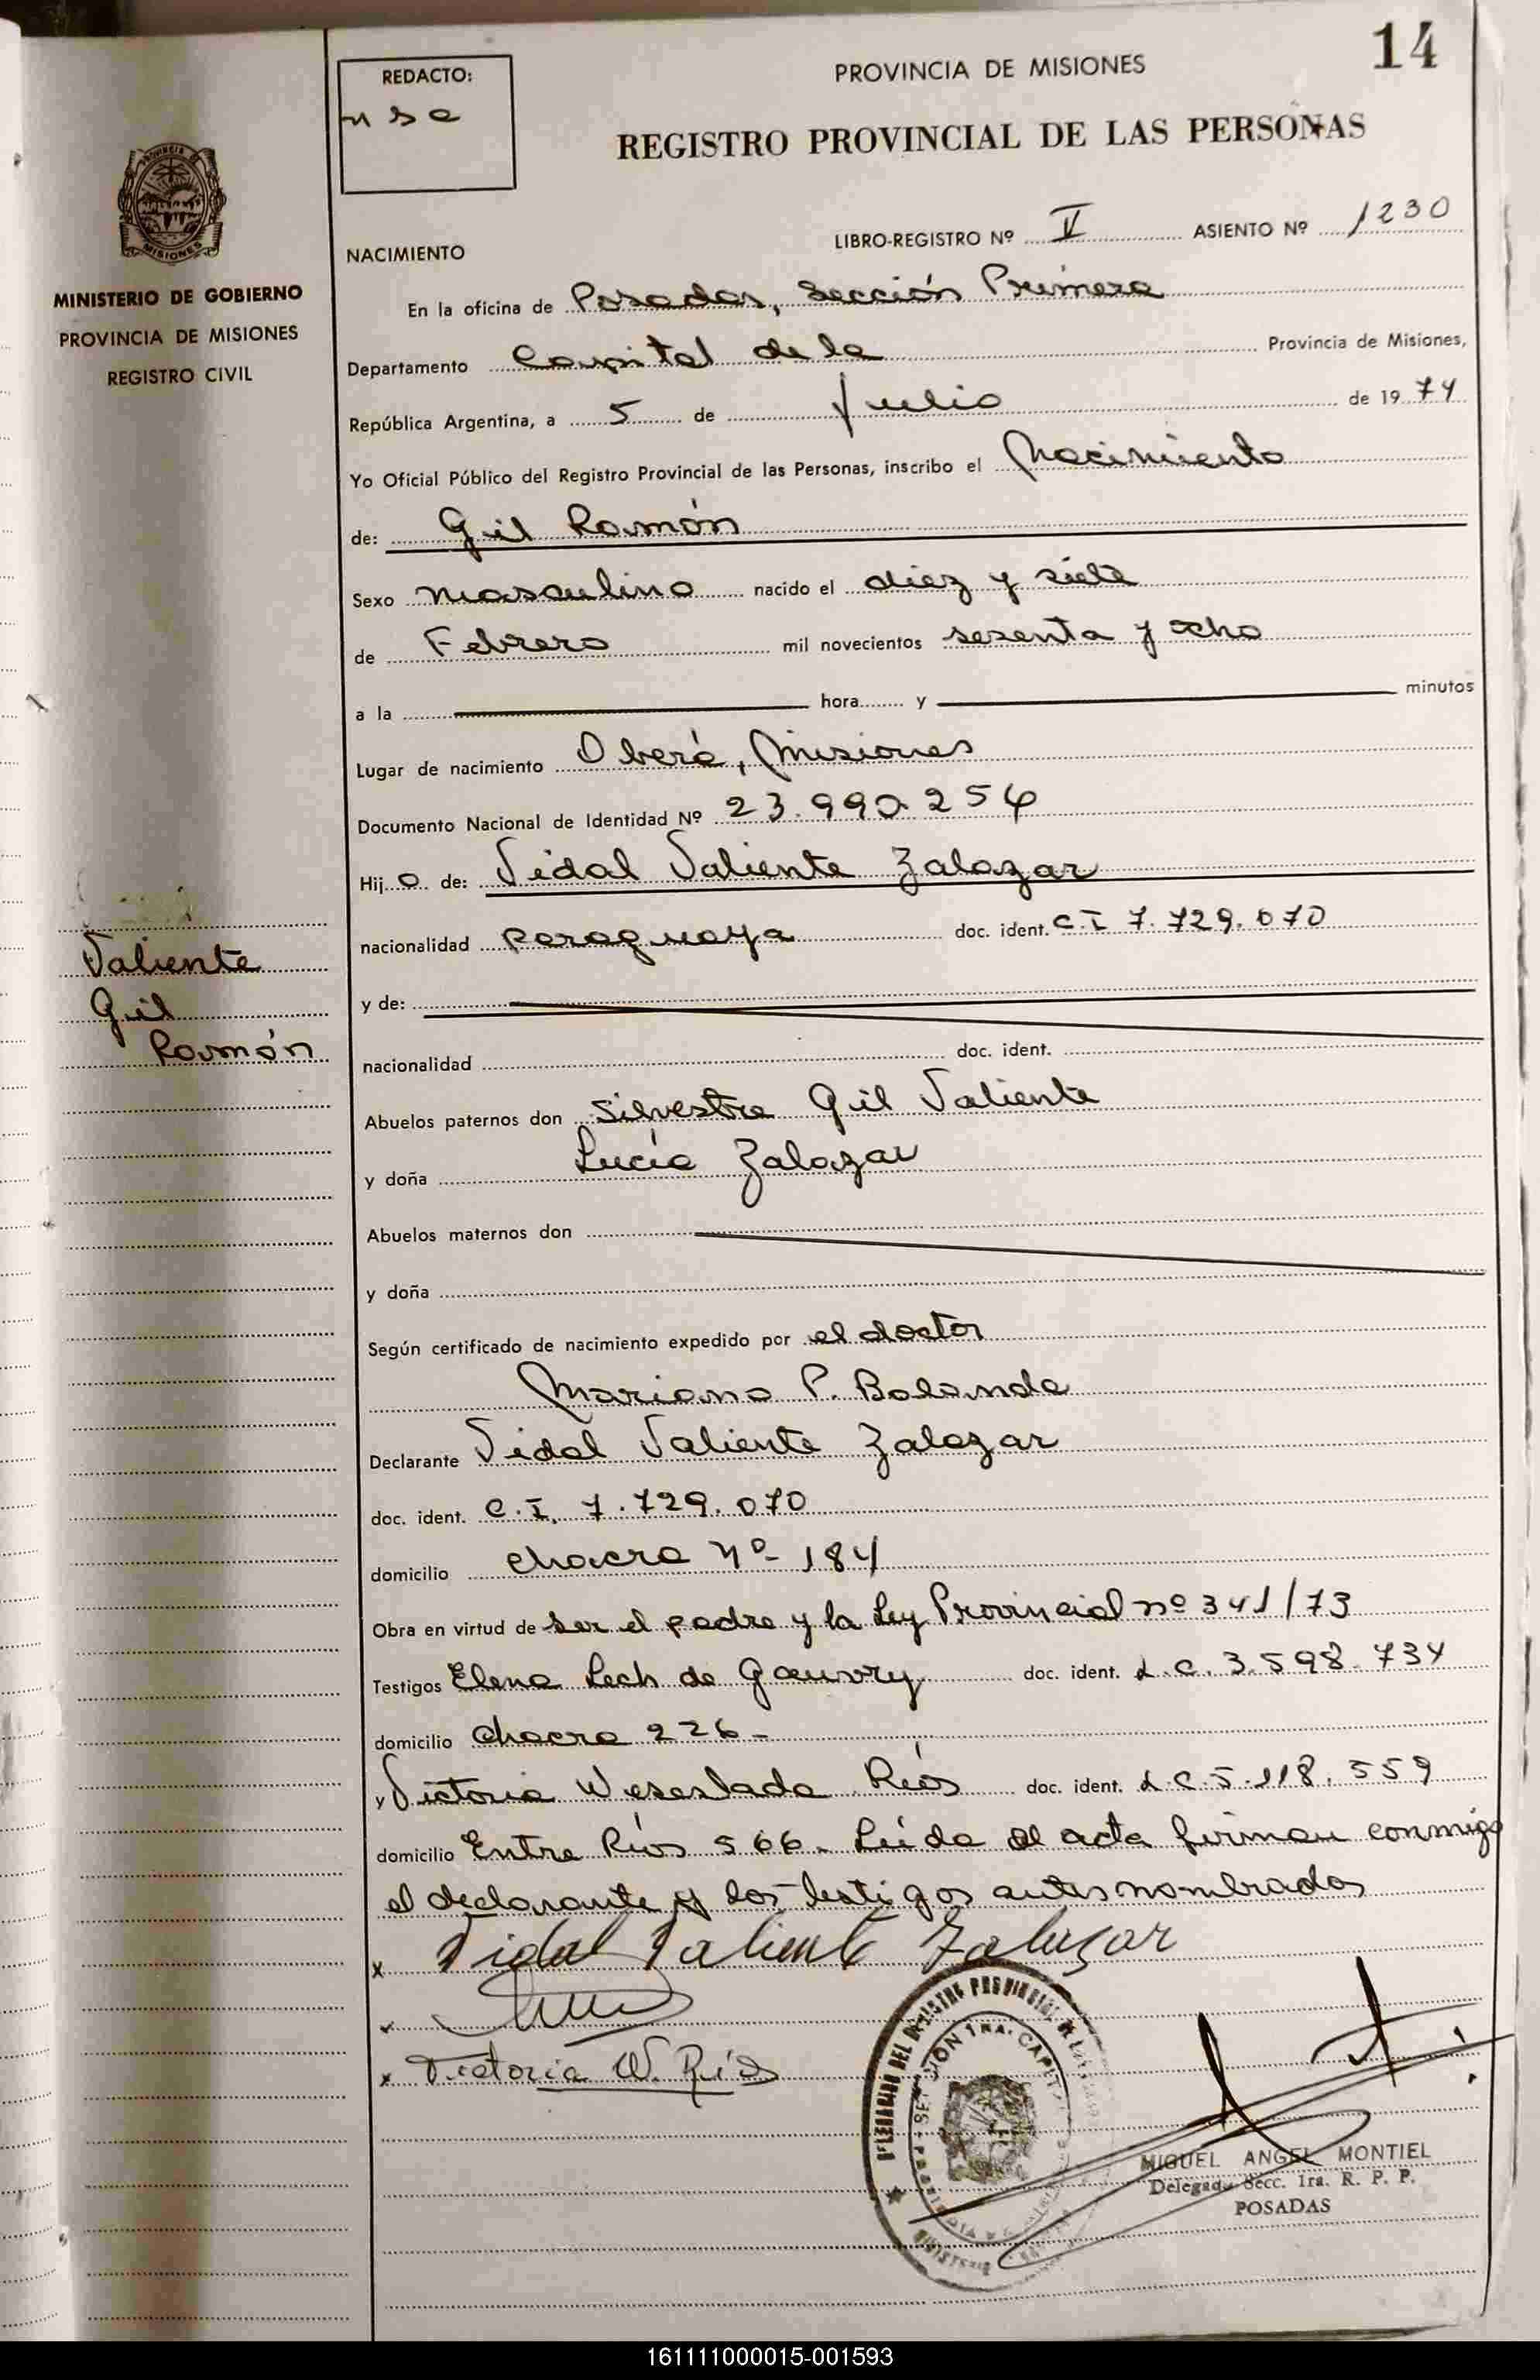 14
REDACTO:
PROVINCIA DE MISIONES
REGISTRO PROVINCIAL DE LAS PERSONAS
MINISTERIO DE GOBIERNO
PROVINCIA DE MISIONES
REGISTRO CIVIL
NACIMIENTO
LIBRO-REGISTRO Nº V ASIENTO Nº 1230
En la oficina de Posadas, Sección Primera
Departamento Capital de la Provincia de Misiones,
República Argentina, a 5 de Julio de 1974
Yo Oficial Público del Registro Provincial de las Personas, inscribo el Nacimiento
de: Gil Ramón
Sexo masculino nacido el diez y siete
de Febrero mil novecientos sesenta y ocho
a la hora y minutos
Lugar de nacimiento Oberá, Misiones
Documento Nacional de Identidad Nº 23.990.254
Hijo de: Vidal Valiente Zalazar
nacionalidad paraguaya doc. ident. C.I 7.729.070
Valiente
Gil
Ramón
y de:
nacionalidad doc. ident.
Abuelos paternos don Silvestre Gil Valiente
y doña Lucía Zalazar
Abuelos maternos don
y doña
Según certificado de nacimiento expedido por el doctor
Mariano P. Balanda
Declarante Vidal Valiente Zalazar
doc. ident. C.I. 7.729.070
domicilio chacra Nº 184
Obra en virtud de ser el padre y la Ley Provincial nº 341/73
Testigos Elena Lech de Gauvry doc. ident. L.C. 3.598.734
domicilio chacra 226-
y Victoria Weseslada Ríos doc. ident. L.C. 5.118.559
domicilio Entre Ríos 566. Leída el acta firman conmigo
el declarante y los testigos antes nombrados
x Vidal Valiente Zalazar
x
x Victoria W. Ríos
MIGUEL ANGEL MONTIEL
Delegado Secc. 1ra. R. P. P.
POSADAS
161111000015-001593